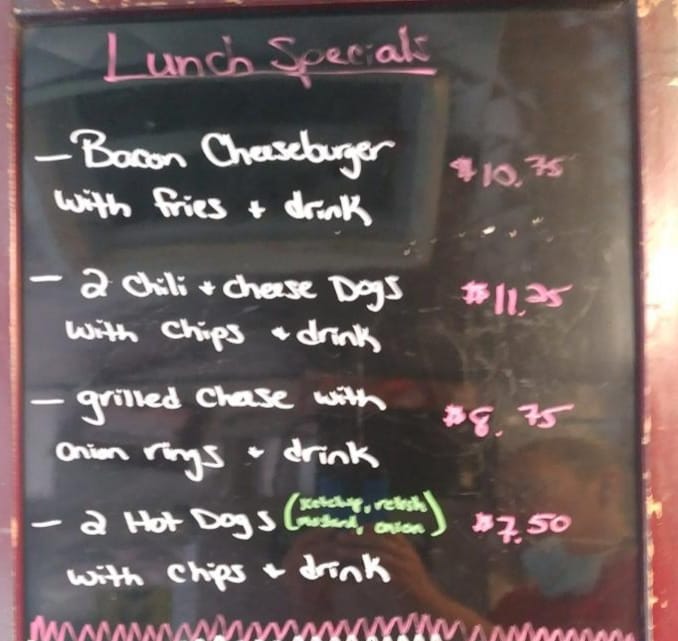 Lunch Specials
- Bacon Cheeseburger $10.75
with fries + drink
- 2 Chili + cheese Dogs $11.25
with chips + drink
- grilled Cheese with $8.75
onion rings + drink
- 2 Hot Dogs (ketchup, relish $7.50
mustard, onion)
with chips + drink